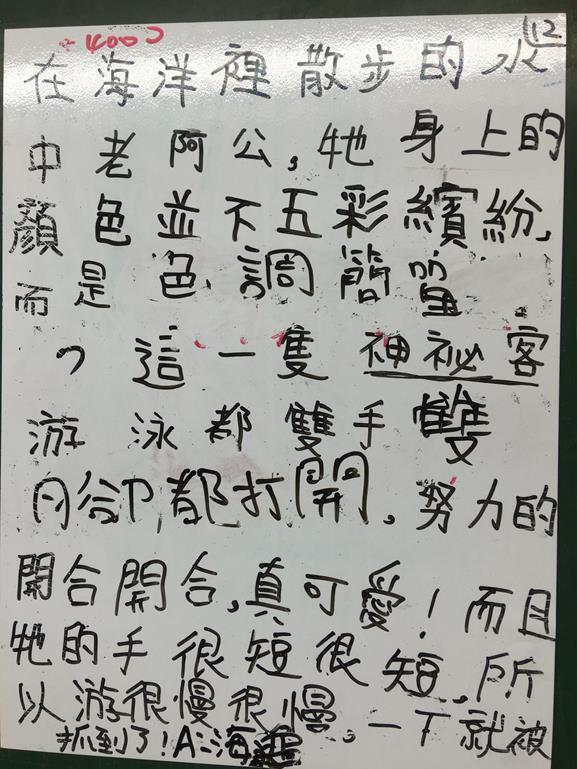 -4000
12
在海洋裡散步的水
中老阿公,牠身上的
顏色並不五彩繽紛,
而是色調簡單
,這一隻神祕客
游泳都雙手雙
腳都打開,努力的
開合開合,真可愛!而且
牠的手很短很短,所
以游很慢很慢,一下就被
抓到了!A:海龜